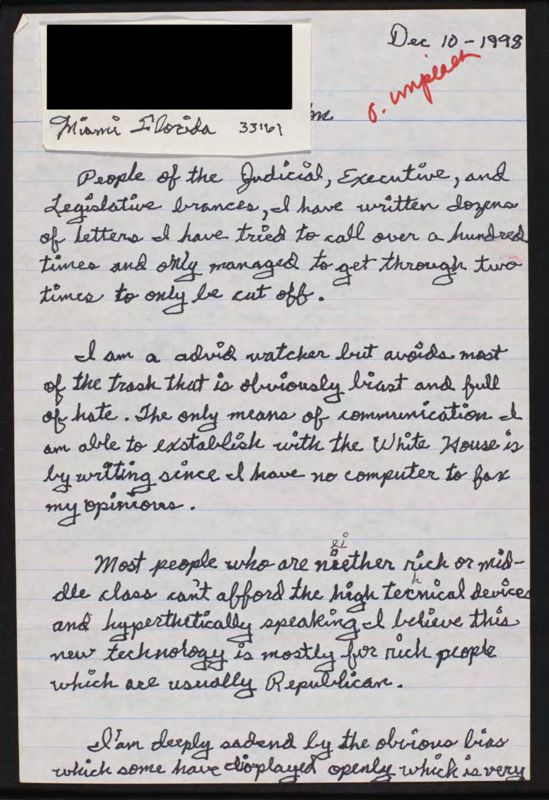 Dec 10-1998
o. impeach
Miami Florida 33161
People of the Judicial, Executive, and
Legislative brances, I have written dozens
of letters I have tried to call over a hundred
times and only managed to get through two
times to only be cut off.
I am a advid watcher but avoids most
of the trash that is obviously biast and full
of hate. The only means of communication I
am able to exstablish with the White House is
by writing since I have no computer to fax
my opinions.
Most people who are neither rich or mid-
dle class can't afford the high technical devices
and hyperthetically speaking I believe this
new technology is mostly for rich people
which are usually Republican.
I am deeply sadend by the obvious bias
which some have displayed openly which is very